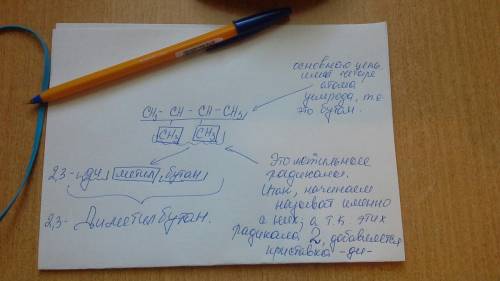 основная цепь
имеет четыре
атома
углерода, т.е.
это бутан.
CH₃ - CH - CH - CH₃
CH₃ CH₃
2,3- ди метил бутан
2,3- Диметилбутан.
Это метильные
радикалы.
Итак, начинаем
называть именно
с них, а т.к. этих
радикала 2, добавляется
приставка -ди-